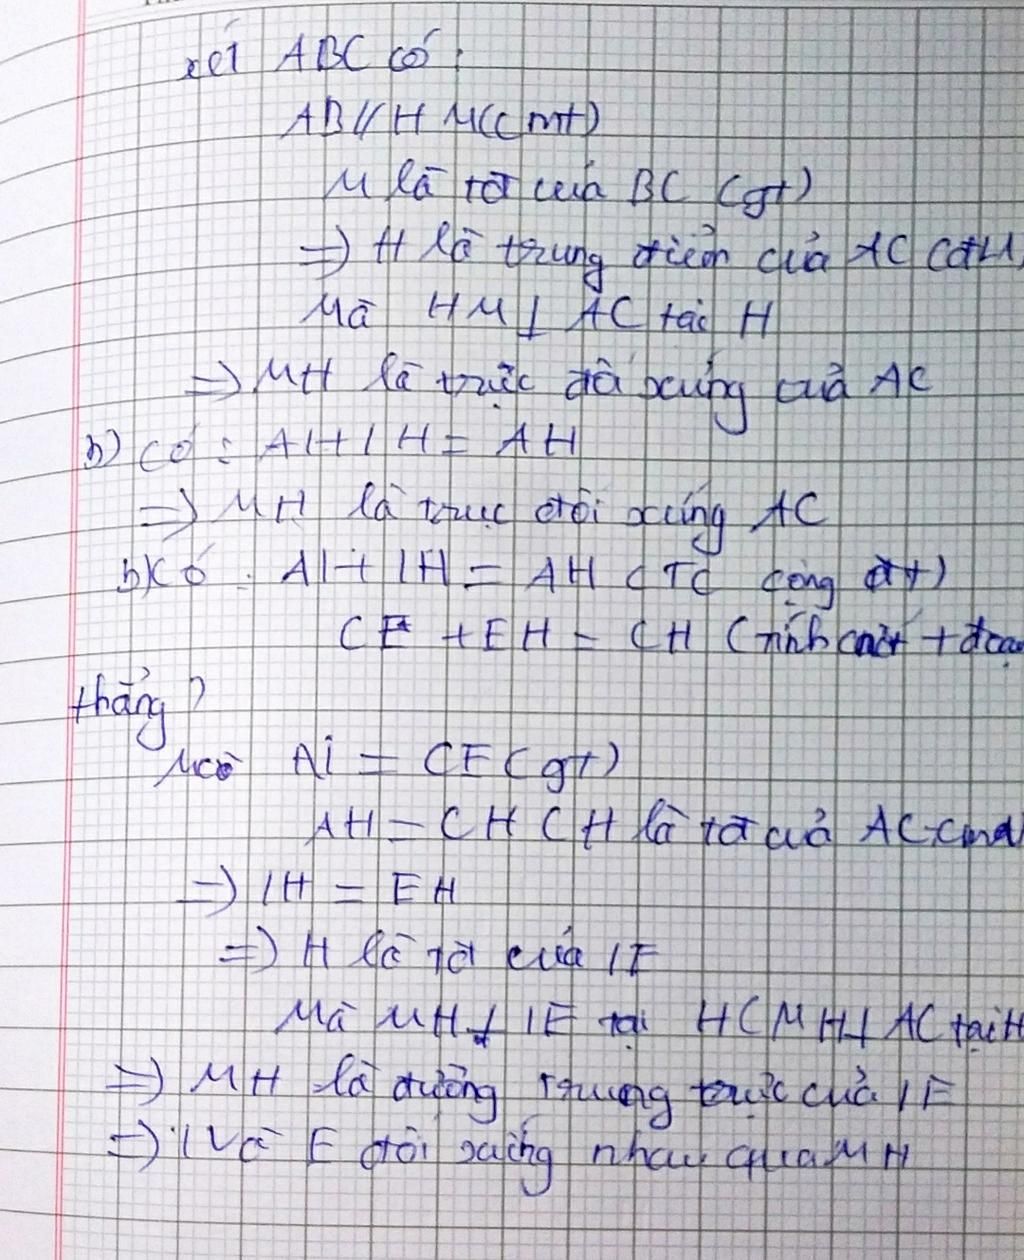 xét ABC có:
AB//HM(cmt)
M là tđ của BC (gt)
=> H là trung điểm của AC (đtl)
Mà HM⊥AC tại H
=> MH là trục đối xứng của AC
b) Có: AI+IH = AH
=> MH là trục đối xứng AC
b) Có: AI+IH = AH (TC cộng đt)
CE +EH = CH (tính chất + đoạn
thẳng)
Mà AI = CE (gt)
AH = CH (H là tđ của AC-cmt)
=> IH = EH
=> H là tđ của IE
Mà MH⊥IE tại H(MH⊥AC tại H
=> MH là đường trung trực của IE
=> I và E đối xứng nhau qua MH